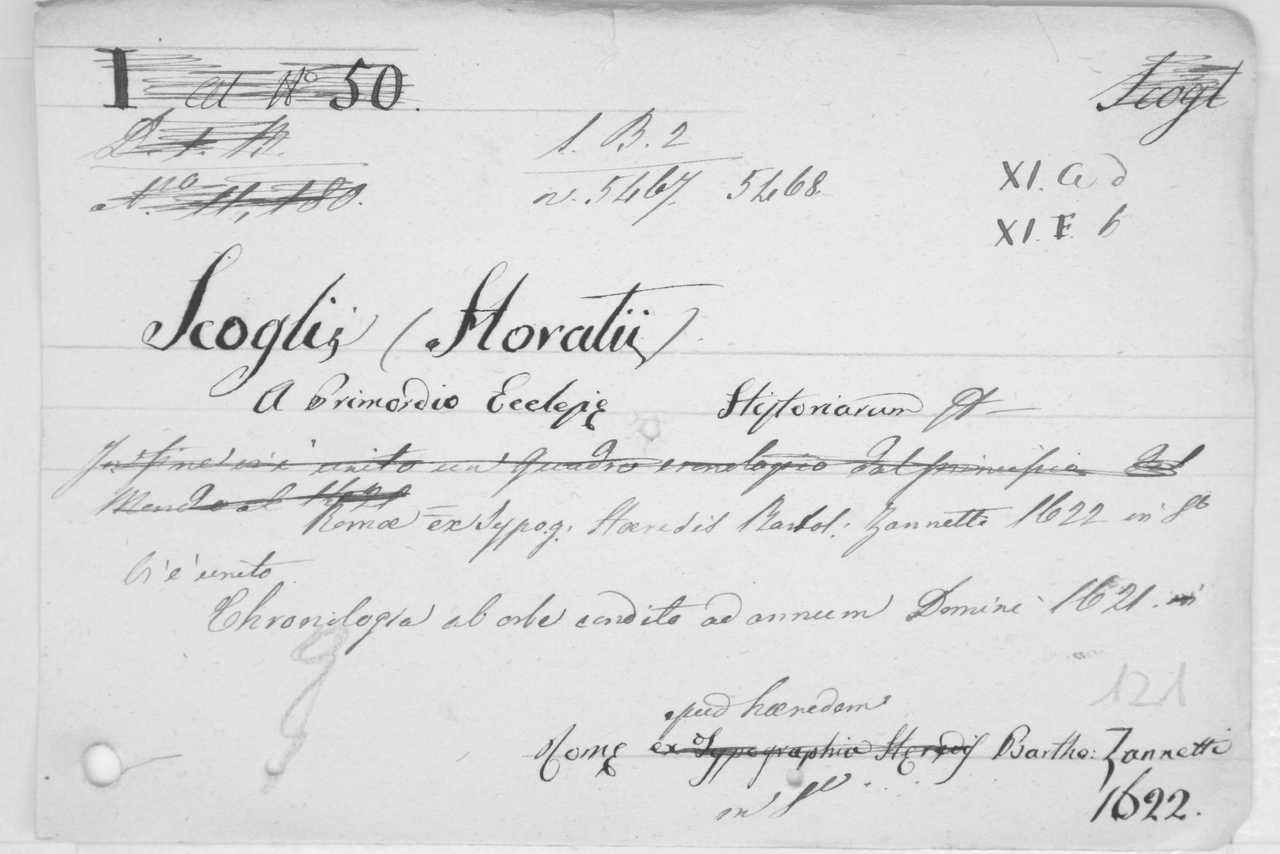 I al N.º 50.
Scogl
D. t. H.
N.ro 11,180.
1. B. 2
n. 5467. 5468
XI. a d
XI. F. b
Scoglii (Horatii)
A Primordio Ecclesię Historiarum &
In fine vi è unito un Quadro cronologico dal principio del
Mondo al 1621
Romæ ex Typog: Hæredis Bartol: Zannetti 1622 in 8º
Vi è unito
Chronologia ab orbe condito ad annum Domini 1621. in
apud hæredem
Romę ex Typographia Hęredis Bartho: Zannetti
in 8º
1622.
121